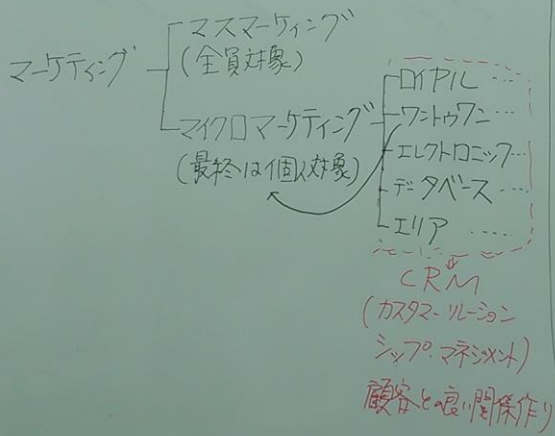 マーケティング
マスマーケティング
(全員対象)
マイクロマーケティング
(最終は個人対象)
ロイヤル……
ワントゥワン……
エレクトロニック…
データベース……
エリア……
CRM
(カスタマーリレーション
シップ・マネジメント)
顧客との良い関係作り